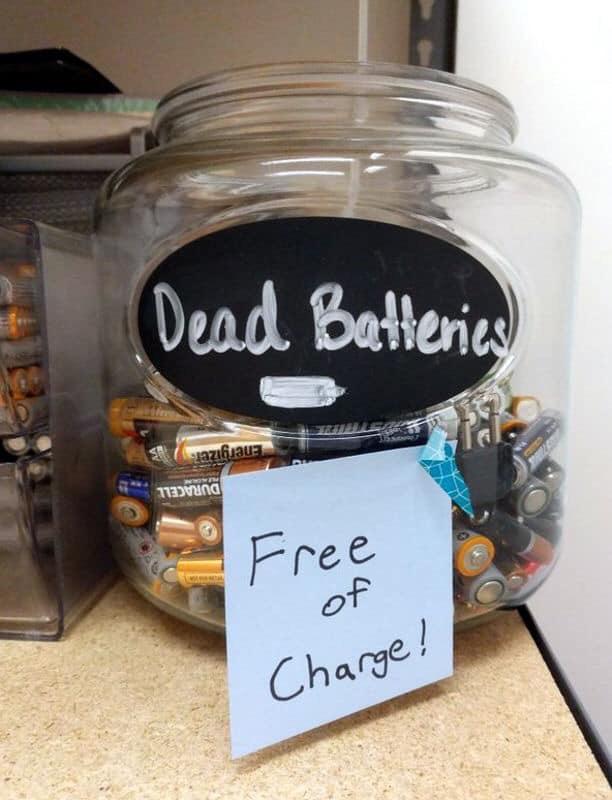 Dead Batteries
Energizer
DURACELL
Free
of
Charge!